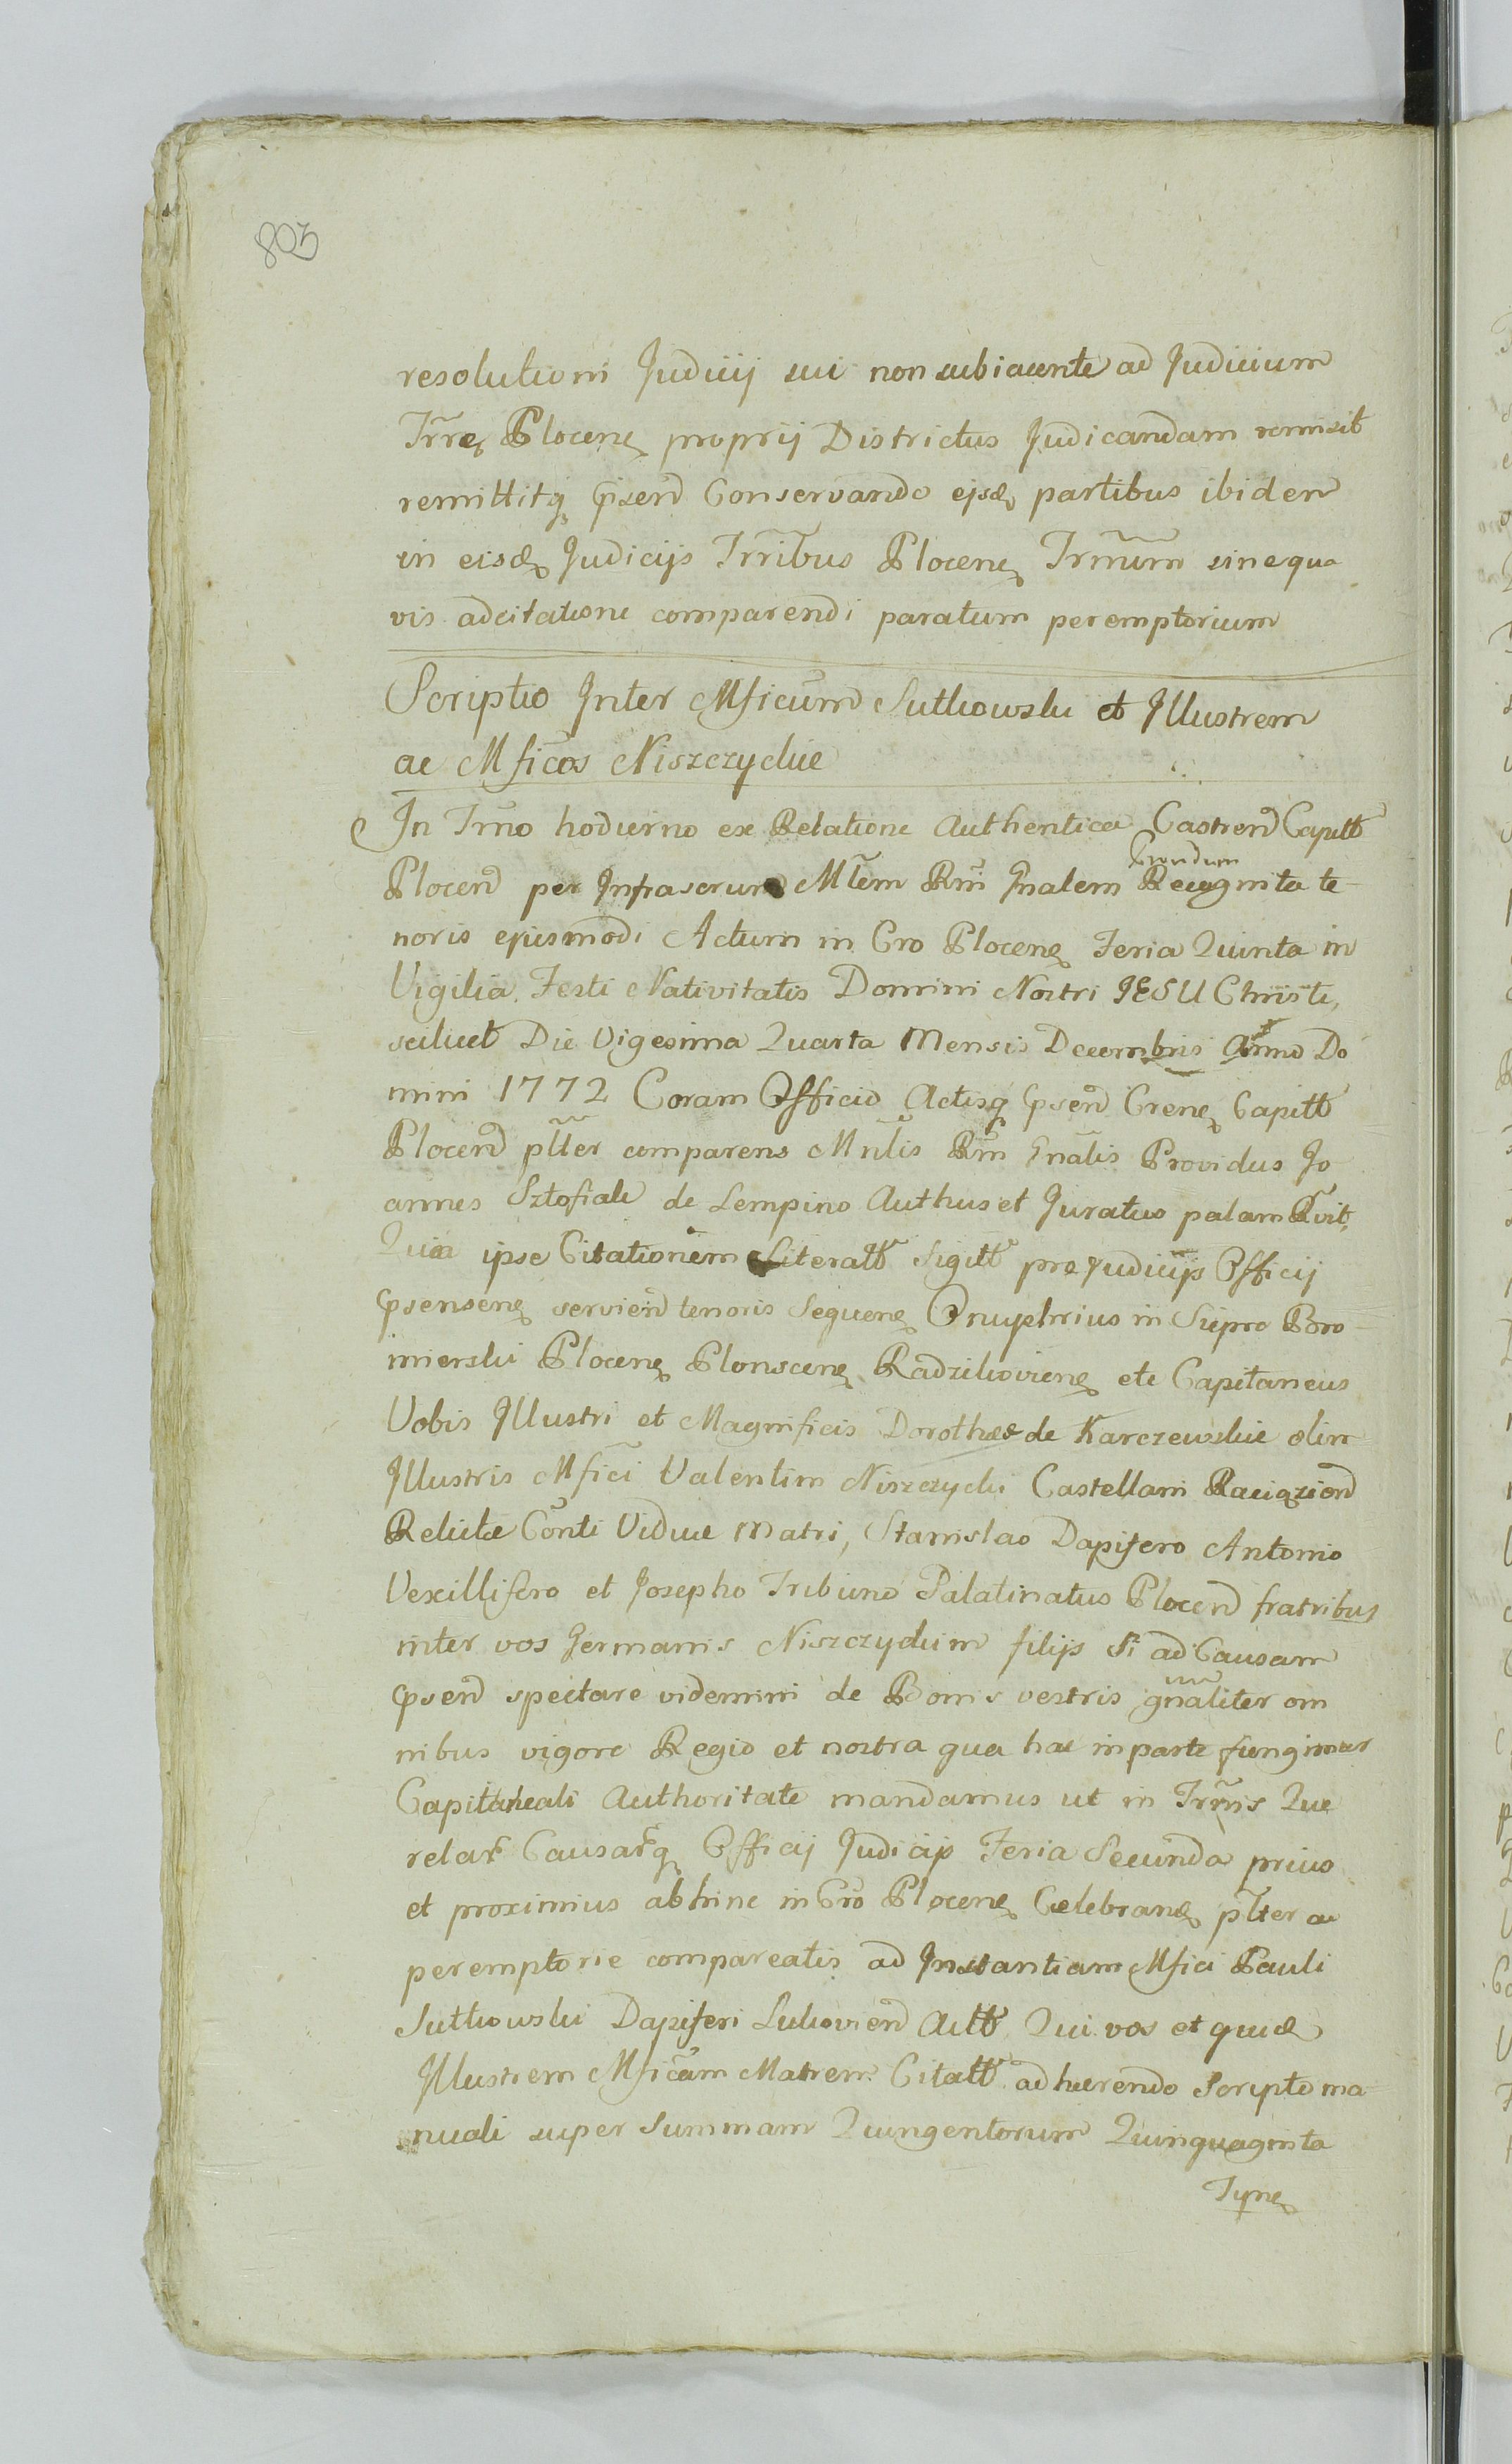 803
resolutioni Judicij sui non subiacente ad Judicium
Trrę Plocen proprij Districtus Judicandam remisit
remittitq pnsen Conservando ejsd partibus ibidem
in eisd Judicijs Trribus Plocen Trmum sine qua
vis adcitatione comparendi paratum peremptorium
Scriptio Inter Mficum Sutkowski et Illustrem
ac Mficos Niszczyckie
In Trno hodierno ex Relatione Authentica Castren Capitt
Grondum
Plocen per Infrascrum Mtem Rni Gnalem Recognita te-
noris ejusmodi Actum in Cro Plocen Feria Quinta in
Vigilia Festi Nativitatis Domini Nostri JESU Christi,
scilicet Die Vigesima Quarta Mensis Decembris Anno Do
mini 1772 Coram Officio Actisq pnsen Cren Capitt
Plocen plter comparens Mnlis Rni Gnalis Providus Jo
annes Sztofiak de Lempino Authus et Juratus palam Rvit,
Quia ipse Citationem Literatt Sigitt pro Judicijs Officij
psensen servien tenoris Sequen Onuphrius in Siepro Bro
mierski Plocen Plonscen Radzikovien etc Capitaneus
Vobis Illustri et Magnificis Dorotheæ de Karczewskie olim
Illustris Mfici Valentini Niszczycki Castellani Raciązien
Relictæ Conti Viduæ Matri, Stanislao Dapifero Antonio
Vexillifero et Josepho Tribuno Palatinatus Plocen fratribus
inter vos Germanis Niszczyckim filijs Si ad Causam
psen spectare videmini de Bonis vestris gnaliter om
nibus vigore Regio et nostra qua hac in parte fungimur
Capitaneali Authoritate mandamus ut in Trmis Que
relar Causarq Officij Judicijs Feria Secunda prius
et proximius abhinc in Cro Plocen Celebran plter ac
peremptorie compareatis ad Instantiam Mfici Pauli
Sutkowski Dapiferi Lukovien Actt Qui vos et quid
Illustrem Mficam Matrem Citatt adhærendo Scripto ma
nuali super Summam Quingentorum Quinquaginta
Tyn